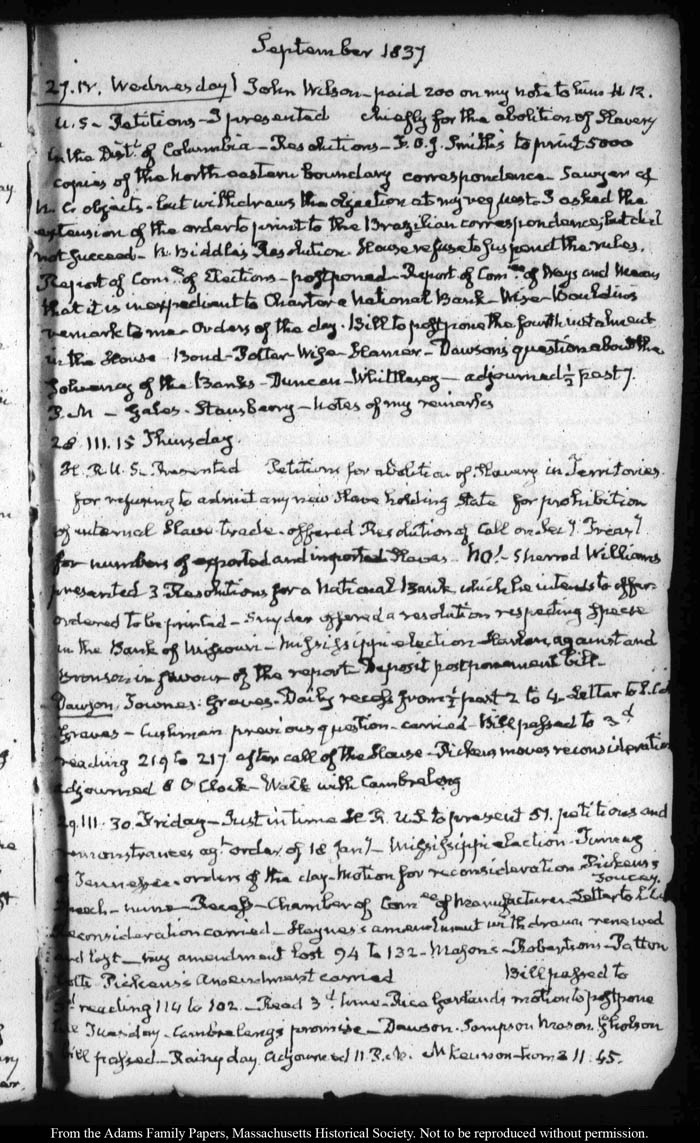 September 1837
27. IV. Wednesday} John Wilson - paid 200 on my note to him H. R.
U.S. - Petitions - I presented chiefly for the abolition of Slavery
in the Dist. of Columbia - Resolutions - F. O. J. Smith's to print 5000
copies of the North eastern boundary correspondence. Sawyer of
N. C. objects - but withdraws the objection at my request. I asked the
extension of the order to print to the Brazilian correspondence, but did
not succeed - Biddle's Resolution. House refuse to suspend the rules.
Report of Comee of Elections - postponed - Report of Comee of Ways and Means
that it is inexpedient to Charter a National Bank - Wise - Bouldin's
remark to me - Orders of the day. Bill to postpone the fourth instalment
in the House Bond - Potter - Wise - Hamer - Dawson's question about the
Solvency of the Banks - Duncan - Whittlesey - adjourned ½ past 7.
P. M - Gales - Stansberry - notes of my remarks
28. III. 15 Thursday.
H. R. U. S. Presented Petitions for abolition of Slavery in Territories.
for refusing to admit any new Slave holding State for prohibition
of internal Slave trade - offered Resolution of Call on Secy. Treasy.
for numbers of exported and imported Slaves - No! - Sherrod Williams
presented 3 Resolutions for a National Bank which he intends to offer
ordered to be printed - Snyder offered a resolution respecting specie
in the Bank of Missouri - Mississippi election - Harlan, against and
Bronson in favour of the report Deposit postponement bill -
Dawson, Townes. Graves - Daily recess from ½ past 2 to 4 - Letter to
Graves - Cushman previous question - carried - Bill passed to 3d
reading 219 to 217 after call of the House - Pickens moves reconsideration
adjourned 8 O'Clock - Walk with Cambreleng
29. III. 30. Friday - Just in time H. R. U.S. to present 51. petitions and
remonstrances agt. order of 18 Jany - Mississippi election. Turney
of Tennessee. orders of the day - Motion for reconsideration Pickens's
Toucey.
Speech - mine - Recess - Chamber of Comee of Manufactures - Letter to
Reconsideration carried - Haynes's amendment withdrawn renewed
and lost - my amendment lost 94 to 132 - Mason's - Robertson's - Patton
Pickens's Amendment carried Bill passed to
3d reading 114 to 102. - Read 3d time - Rice Garland's motion to postpone
till Tuesday - Cambreleng's promise - Dawson. Sampson Mason. Gholson
Bill passed - Rainy day. Adjourned 11. P. M. home 11. 45.
From the Adams Family Papers, Massachusetts Historical Society. Not to be reproduced without permission.